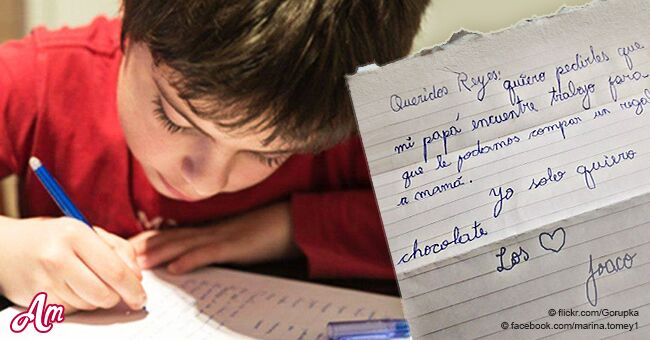 Queridos Reyes: quiero pedirles que
mi papá encuentre trabajo para
que le podamos compar un regal
a mamá. Yo solo quiero
chocolate
Los ♡
Joaco
Am
© flickr.com/Gorupka
© facebook.com/marina.tomey1